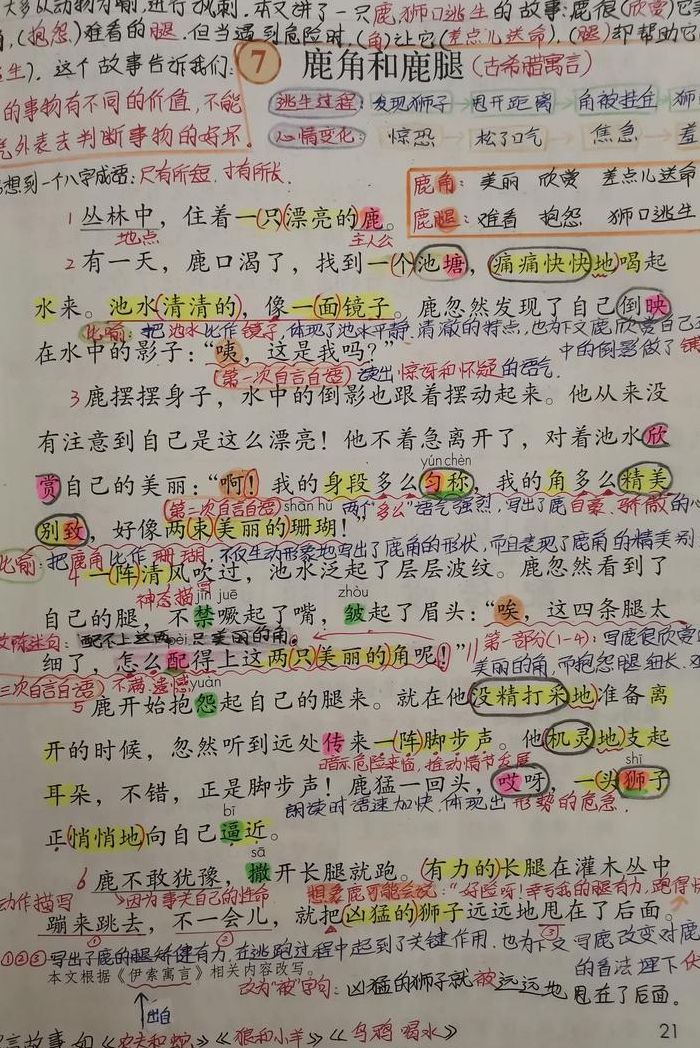 大多以动物为喻,进行讽刺.本文讲了一只鹿,狮口逃生的故事:鹿很(欣赏)它
角,(抱怨)难看的腿.但当遇到危险时,(角)让它(差点儿送命),(腿)却帮助它
逃生).这个故事告诉我们:
7 鹿角和鹿腿(古希腊寓言)
的事物有不同的价值,不能
凭外表去判断事物的好坏.
逃生过程: 发现狮子 甩开距离 角被挂住 狮
心情变化: 惊恐 松了口气 焦急 羞
想到一个八字成语:尺有所短,寸有所长.
鹿角: 美丽 欣赏 差点儿送命
鹿腿: 难看 抱怨 狮口逃生
1 丛林中,住着一(只)漂亮的鹿。
地点 主人公
2 有一天,鹿口渴了,找到一(个)池塘,痛痛快快地喝起
水来。池水(清清的),像一(面)镜子。鹿忽然发现了自己倒映
比喻:把池水比作镜子,体现了池水平静,清澈的特点,也为下文鹿欣赏自己
中的倒影做了
在水中的影子:“咦,这是我吗?”
(第一次自言自语) 读出惊讶和怀疑的语气.
3 鹿摆摆身子,水中的倒影也跟着摆动起来。他从来没
有注意到自己是这么漂亮!他不着急离开了,对着池水欣
yún chèn
赏自己的美丽:“啊!我的身段多么匀称,我的角多么精美
(第二次自言自语) shān hú 两个“多么”语气强烈,写出了鹿自豪、骄傲的心
别致,好像两(束)美丽的珊瑚!”
比喻:把鹿角比作珊瑚,不仅生动形象地写出了鹿角的形状,而且表现了鹿角的精美别
4 一(阵)清风吹过,池水泛起了层层波纹。鹿忽然看到了
神态描写 jīn juē zhòu
自己的腿,不禁噘起了嘴,皱起了眉头:“唉,这四条腿太
改陈述句:配不上这两只美丽的角。 pèi 第一部分(1-4):写鹿很欣赏
细了,怎么配得上这两(只)美丽的角呢!”
美丽的角,而抱怨腿细长、
三次自言自语) 不满,遗憾 yuàn
5 鹿开始抱怨起自己的腿来。就在他没精打采地准备离
开的时候,忽然听到远处传来一(阵)脚步声。他机灵地支起
暗示危险来临,推动情节发展 shī
耳朵,不错,正是脚步声!鹿猛一回头,哎呀,一(头)狮子
bī 朗读时语速加快,体现出形势的危急.
正(悄悄地)向自己逼近。
sā
6 鹿不敢犹豫,撒开长腿就跑。(有力的)长腿在灌木丛中
动作描写 因为事关自己的性命 想象鹿可能会说:“好险呀!幸亏我的腿有力,跑得
蹦来跳去,不一会儿,就把(凶猛的)狮子远远地甩在了后面。
① ② ③
①②③写出了鹿的腿矫健有力,在逃跑过程中起到了关键作用.也为下文写鹿改变对鹿
的看法埋下
本文根据《伊索寓言》相关内容改写。
改为“被”字句:凶猛的狮子就被远远地甩在了后面.
出自
21
言故事,如《农夫和蛇》《狼和小羊》《乌鸦喝水》